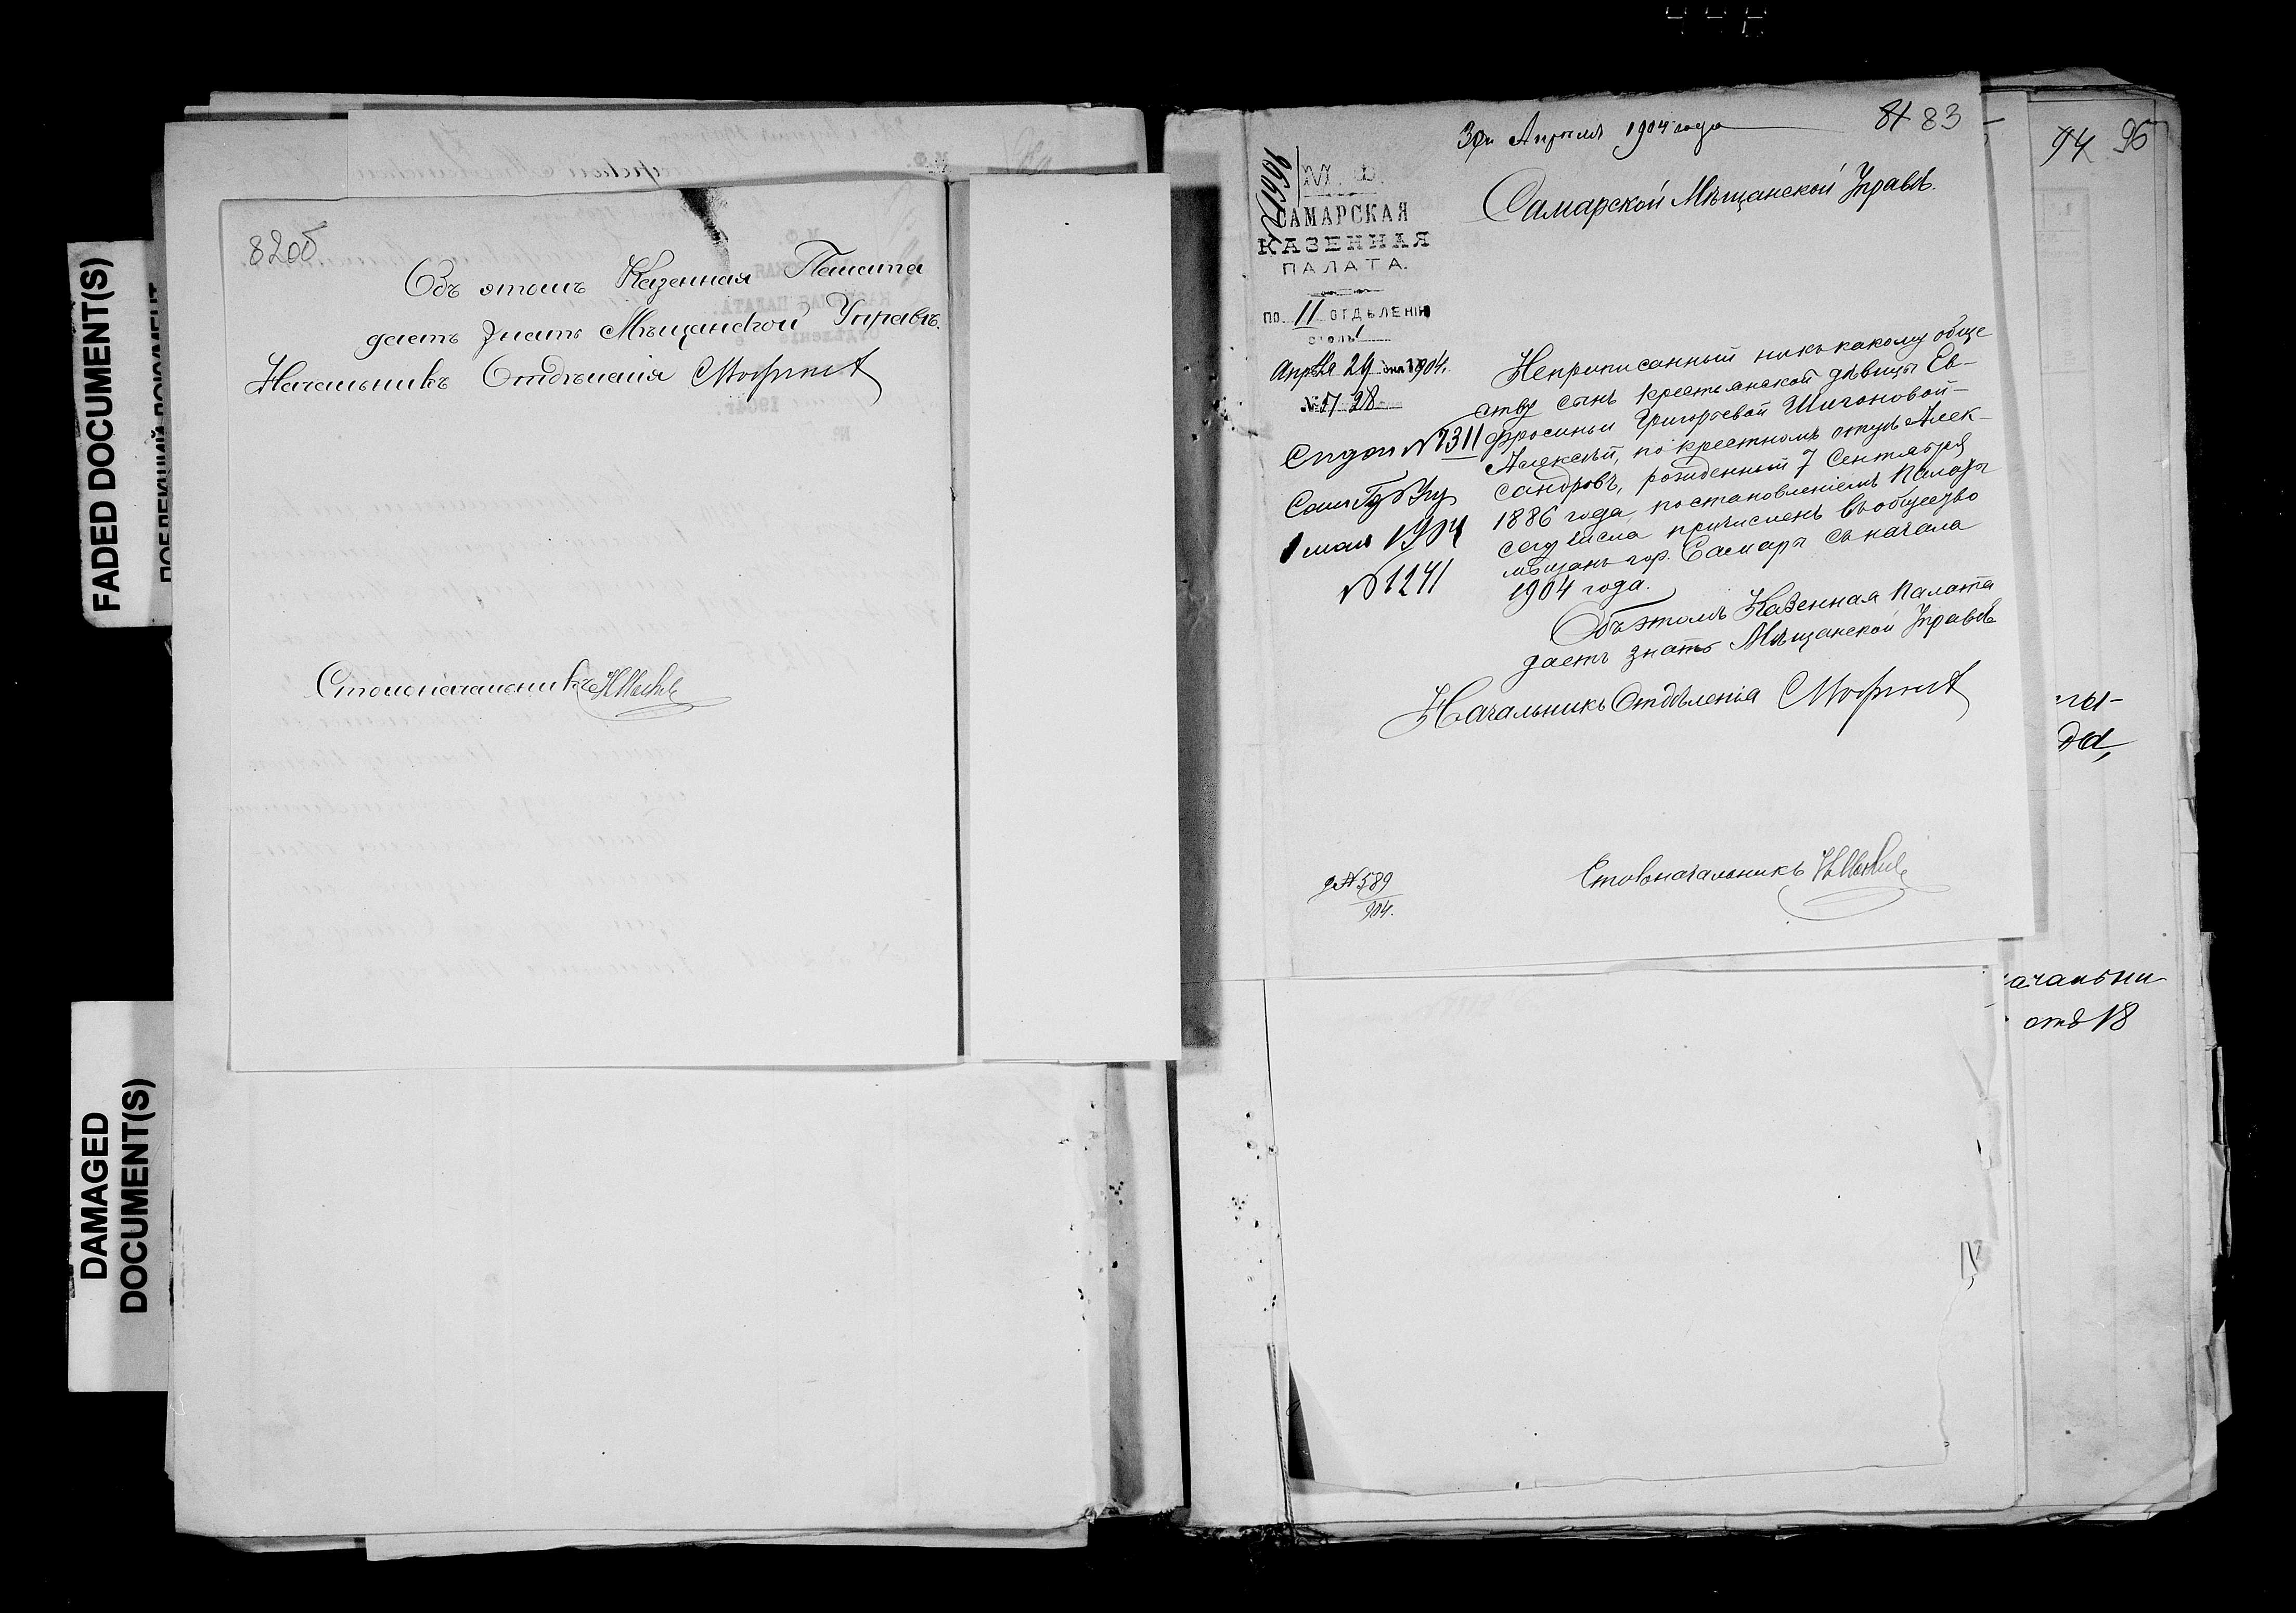 FADED DOCUMENT(S)
DAMAGED
DOCUMENT(S)
82об
Объ этомъ Казенная Палата
даетъ знать Мѣщанской Управѣ.
Начальникъ Отдѣленія
Столоначальникъ
30 Апрѣля 1904 года
81 83
Самарской Мѣщанской Управѣ.
№1996
М. Ф.
САМАРСКАЯ
КАЗЕННАЯ
ПАЛАТА.
ПО II ОТДѢЛЕНІЮ
столъ 1
Апрѣля 29 дня 1904.
№ 5728
№ 7311
1 мая 1904
№ 1241
Неприписанный ни къ какому обще
ству сынъ крестьянской дѣвицы Ев-
фросиньи Григорьевой Шигоновой-
Алексѣй, по крестномъ отцѣ Алек-
сандровъ, рожденный 7 Сентября
1886 года, постановленіемъ Палаты
сего числа причисленъ въ общество
мѣщанъ гор. Самары съ начала
1904 года.
Объ этомъ Казенная Палата
даетъ знать Мѣщанской Управѣ
Начальникъ Отдѣленія
Столоначальникъ
д№589
904.
94 96
да,
ачальни
отд 18